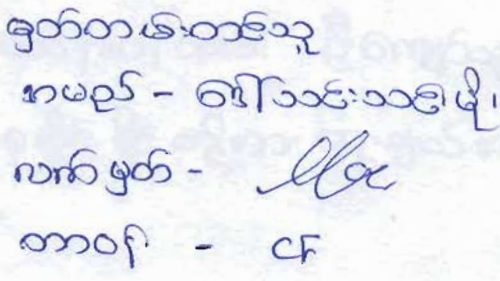 မှတ်တမ်းတင်သူ
အမည် - ဒေါ်သင်းသဇာဖြိုး
လက်မှတ် -
တာဝန် - CF